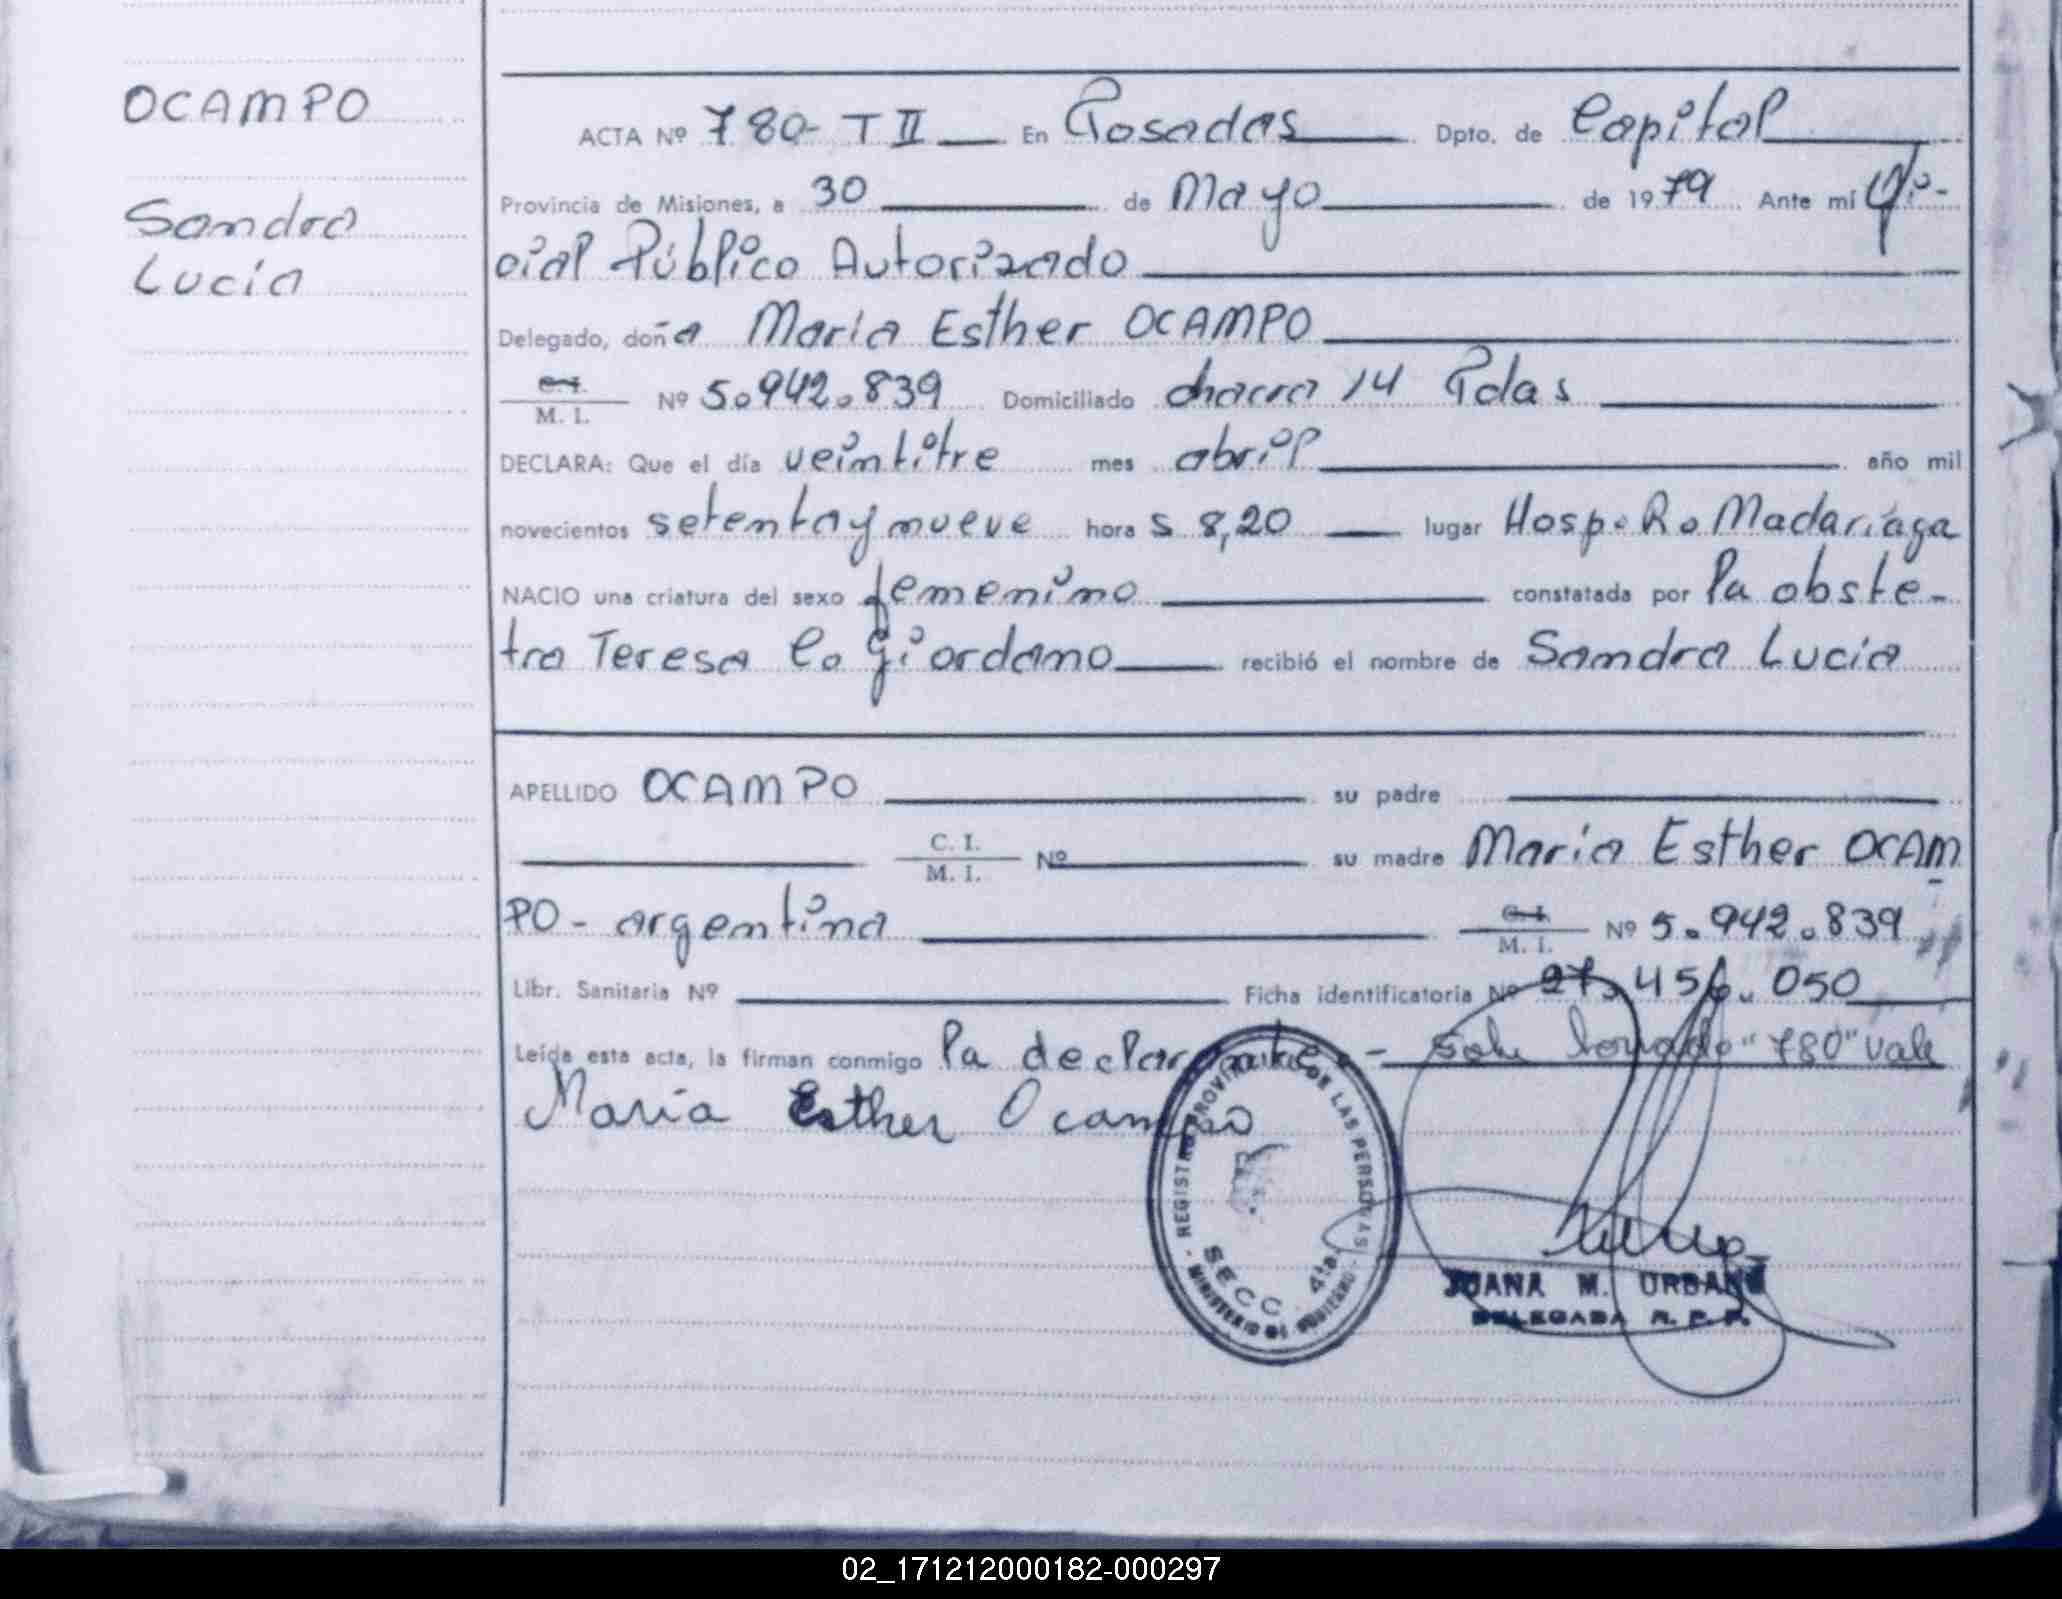 OCAMPO
Sandra
Lucía
ACTA Nº 780- T II En Posadas Dpto. de Capital
Provincia de Misiones, a 30 de Mayo de 1979 Ante mí Ofi-
cial Público Autorizado
Delegado, doña María Esther OCAMPO
C. I.
M. I. Nº 5.942.839 Domiciliado chacra 14 Pdas
DECLARA: Que el día veintitre mes abril año mil
novecientos setenta y nueve hora s 8,20 lugar Hosp. R. Madariaga
NACIO una criatura del sexo femenino constatada por la obste-
tra Teresa C. Giordano recibió el nombre de Sandra Lucía
APELLIDO OCAMPO su padre
C. I.
M. I. Nº su madre María Esther OCAM
PO - argentina C. I.
M. I. Nº 5.942.839
Libr. Sanitaria Nº Ficha identificatoria Nº 27.456.050
Leída esta acta, la firman conmigo la declarante.- sobre borrado "780" vale
María Esther Ocampo
REGISTRO PROVINCIAL DE LAS PERSONAS
SECC. 4ta.
MINISTERIO DE GOBIERNO
JUANA M. URBANO
DELEGADA R. P. P.
02_171212000182-000297